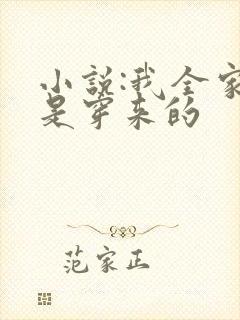 小说:我全家
是穿来的
范家正